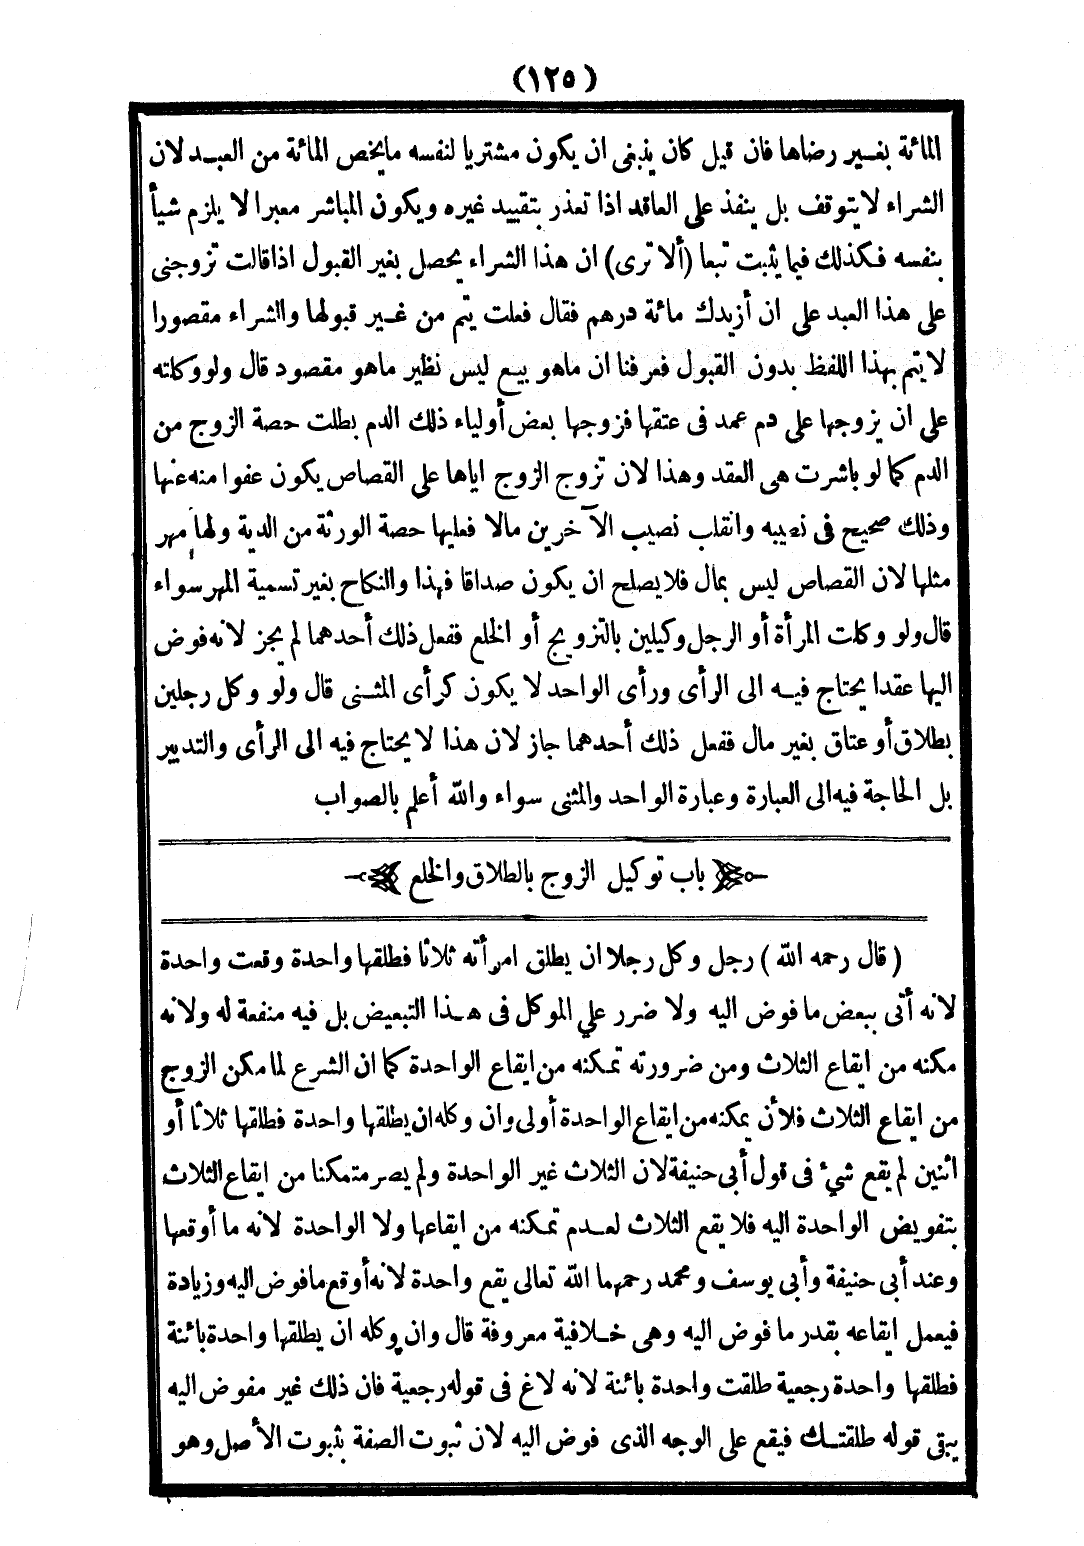 (١٢٥)
المائة بغير رضاها فان قيل كان ينبغى ان يكون مشتريا لنفسه ما يخص المائة من العبد لان
الشراء لا يتوقف بل ينفذ على العاقد اذا تعذر بتقييد غيره ويكون المباشر معبرا لا يلزم شيأ
بنفسه فكذلك فيما يثبت تبعا (ألا ترى) ان هذا الشراء يحصل بغير القبول اذا قالت تزوجنى
على هذا العبد على ان أزيدك مائة درهم فقال فعلت يتم من غير قبولها والشراء مقصورا
لا يتم بهذا اللفظ بدون القبول فعرفنا ان ماهو بيع ليس نظير ماهو مقصود قال ولو وكلته
على ان يزوجها على دم عمد فى عتقها فزوجها بعض أولياء ذلك الدم بطلت حصة الزوج من
الدم كما لو باشرت هى العقد وهذا لان تزوج الزوج اياها على القصاص يكون عفوا منه عنها
وذلك صحيح فى نصيبه وانقلب نصيب الآخرين مالا فعليها حصة الورثة من الدية ولها مهر
مثلها لان القصاص ليس بمال فلا يصلح ان يكون صداقا فهذا والنكاح بغير تسمية المهر سواء
قال ولو وكلت المرأة أو الرجل وكيلين بالتزويج أو الخلع ففعل ذلك أحدهما لم يجز لانه فوض
اليها عقدا يحتاج فيه الى الرأى ورأى الواحد لا يكون كرأى المثنى قال ولو وكل رجلين
بطلاق أو عتاق بغير مال ففعل ذلك أحدهما جاز لان هذا لا يحتاج فيه الى الرأى والتدبير
بل الحاجة فيه الى العبارة وعبارة الواحد والمثنى سواء والله أعلم بالصواب
باب توكيل الزوج بالطلاق والخلع
(قال رحمه الله) رجل وكل رجلا ان يطلق امرأته ثلاثا فطلقها واحدة وقعت واحدة
لانه أتى ببعض ما فوض اليه ولا ضرر على الموكل فى هذا التبعيض بل فيه منفعة له ولانه
مكنه من ايقاع الثلاث ومن ضرورته تمكنه من ايقاع الواحدة كما ان الشرع لما مكن الزوج
من ايقاع الثلاث فلأن يمكنه من ايقاع الواحدة أولى وان وكله ان يطلقها واحدة فطلقها ثلاثا أو
اثنين لم يقع شىء فى قول أبى حنيفة لان الثلاث غير الواحدة ولم يصر متمكنا من ايقاع الثلاث
بتفويض الواحدة اليه فلا يقع الثلاث لعدم تمكنه من ايقاعها ولا الواحدة لانه ما أوقعها
وعند أبى حنيفة وأبى يوسف ومحمد رحمهما الله تعالى يقع واحدة لانه أوقع ما فوض اليه وزيادة
فيعمل ايقاعه بقدر ما فوض اليه وهى خلافية معروفة قال وان وكله ان يطلقها واحدة بائنة
فطلقها واحدة رجعية طلقت واحدة بائنة لانه لاغ فى قوله رجعية فان ذلك غير مفوض اليه
يبقى قوله طلقتك فيقع على الوجه الذى فوض اليه لان ثبوت الصفة بثبوت الأصل وهو